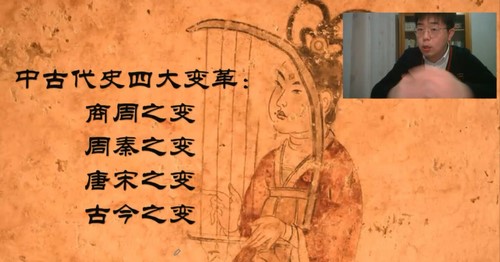 中古代史四大变革：
商周之变
周秦之变
唐宋之变
古今之变